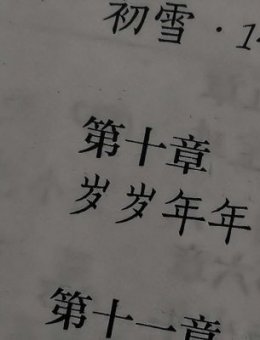 初雪 · 1
第十章
岁岁年年
第十一章